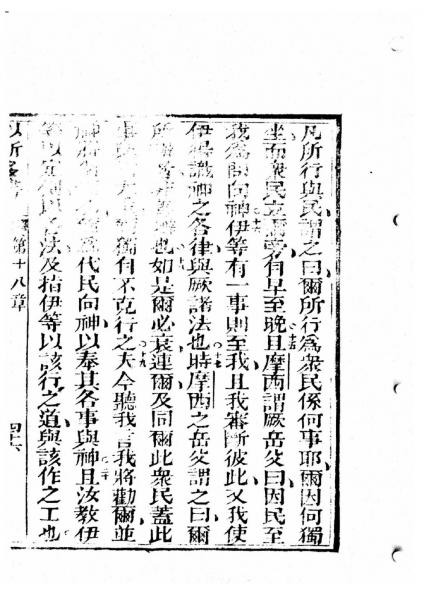 凡所行與民謂之曰爾所行為衆民係何事耶爾因何獨
坐而衆民立爾旁自早至晚且摩西謂厥岳父曰因民至
我為師向神伊等有一事則至我且我審斷彼此又我使
伊得識神之各律與厥諸法也時摩西之岳父謂之曰爾
所 也如是爾必衰連爾及同爾此衆民蓋此
爾獨自不克行之夫今聽我言我將勸爾並
神 代民向神以奉其各事與神且汝教伊
等以 法及指伊等以該行之道與該作之工也
第十八章 四十六